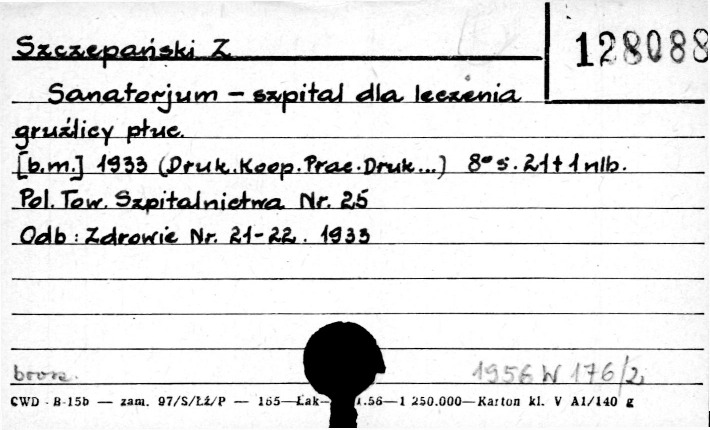 Szczepański Z
128088
Sanatorjum - szpital dla leczenia
gruźlicy płuc.
[b.m.] 1933 (Druk. Koop. Prac. Druk...) 8° s. 21+1 nlb.
Pol. Tow. Szpitalnictwa Nr. 25
Odb: Zdrowie Nr. 21-22. 1933
brosz. 1956 W 176/2
CWD - B-15b — zam. 97/S/Łż/P — 165—Łak— .56—1 250.000—Karton kl. V A1/140 g